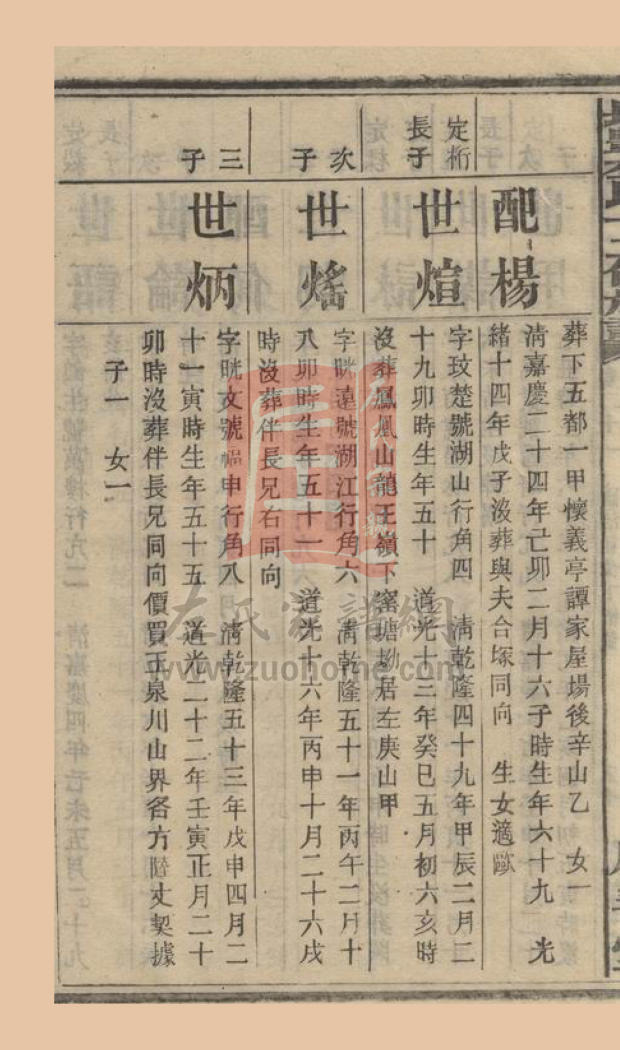 葬下五都一甲懷義亭譚家屋場後辛山乙　女一
配楊
清嘉慶二十四年己卯二月十六子時生年六十九　光
緒十四年戊子沒葬與夫合塚同向　生女適歐
定桁
長子
世煊
字玟楚號湖山行角四　清乾隆四十九年甲辰二月二
十九卯時生年五十　道光十三年癸巳五月初六亥時
沒葬鳳凰山龍王嶺下窰塘坳居左庚山甲
次子
世熎
字晄遠號湖江行角六　清乾隆五十一年丙午二月十
八卯時生年五十一　道光十六年丙申十月二十六戌
時沒葬伴長兄右同向
三子
世炳
字晄文號幅申行角八　清乾隆五十三年戊申四月二
十一寅時生年五十五　道光二十二年壬寅正月二十
卯時沒葬伴長兄同向價買正泉川山界各方隨丈契據
子一　女一
左氏家譜網
www.zuohome.com